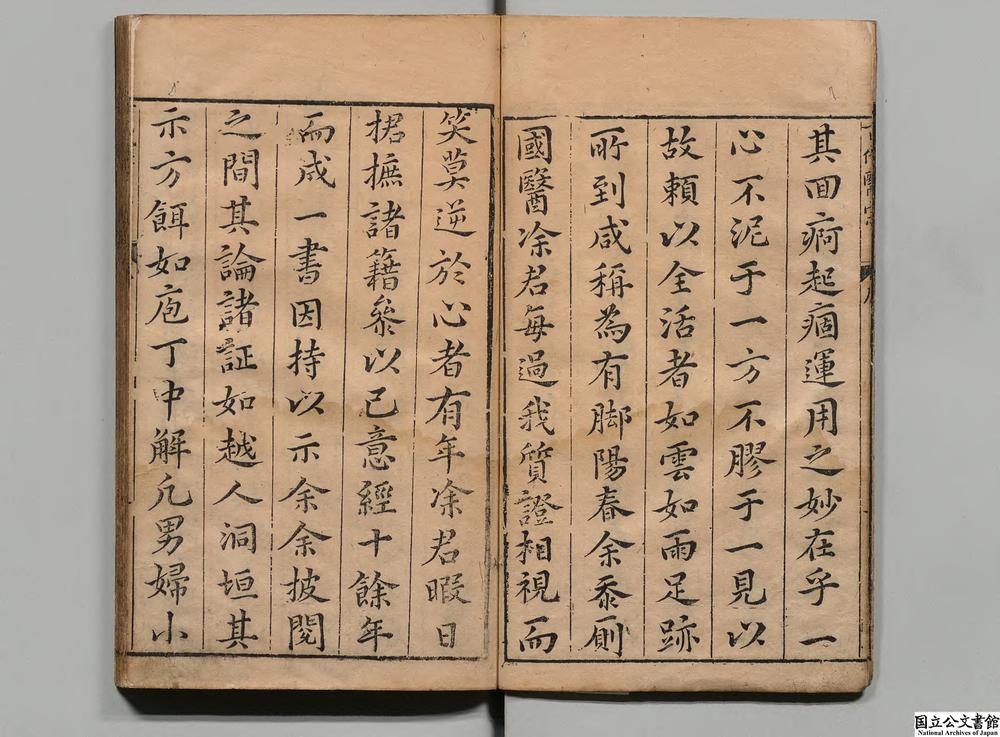 其回痾起痼運用之妙在乎一
心不泥于一方不膠于一見以
故賴以全活者如雲如雨足跡
所到咸稱為有脚陽春余忝厠
國醫凃君每過我質證相視而
笑莫逆於心者有年凃君暇日
捃摭諸籍叅以己意經十餘年
而成一書因持以示余余披閱
之間其論諸証如越人洞垣其
示方餌如庖丁中解凡男婦小
国立公文書館
National Archives of Japan